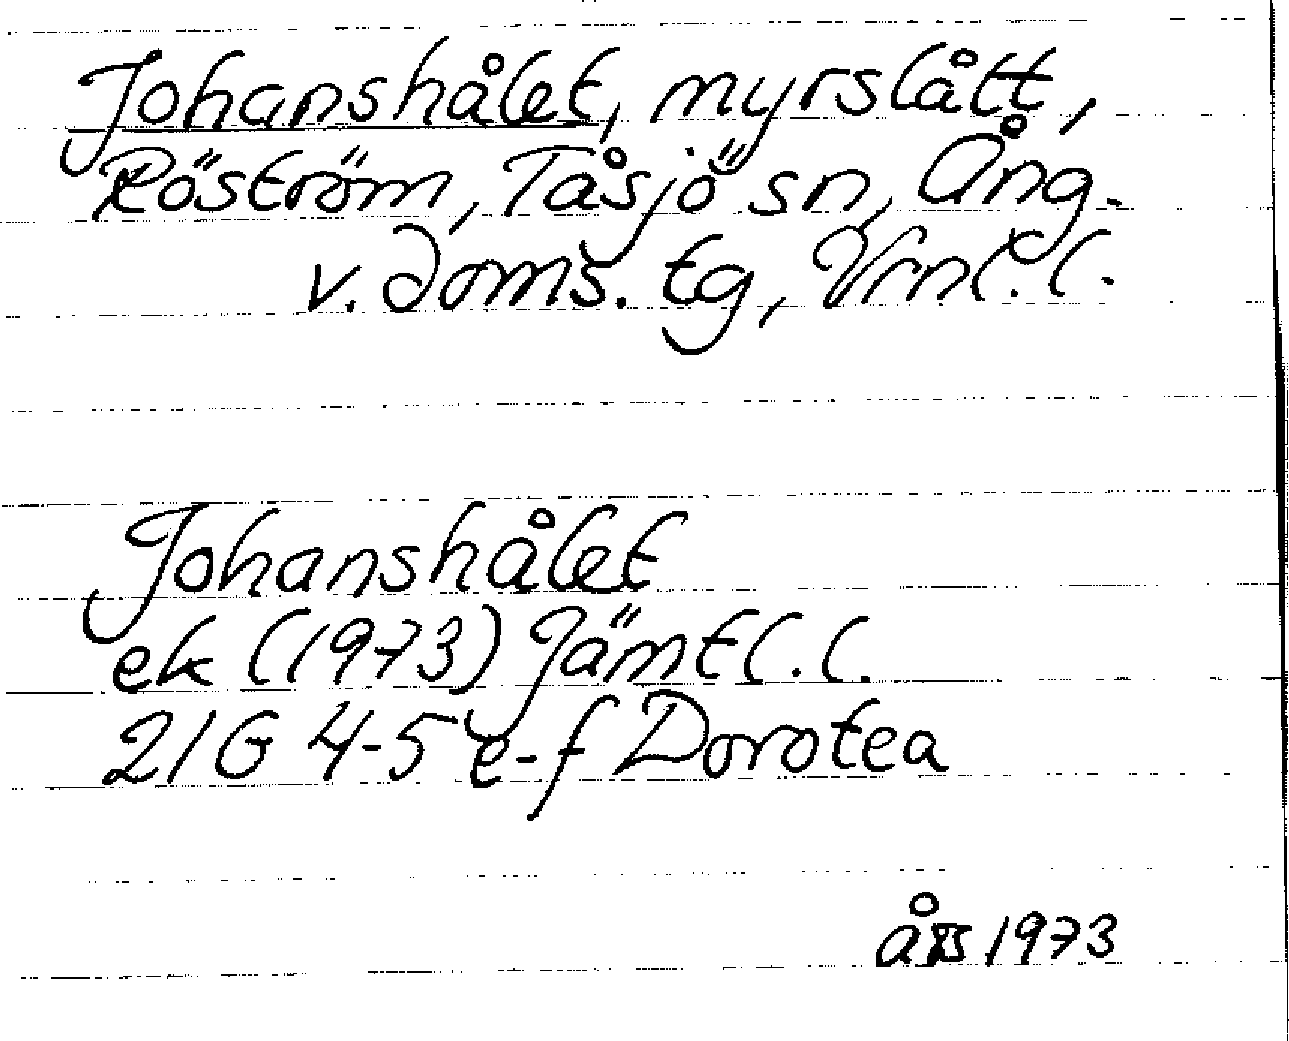 Johanshålet, myrslått,
Röström, Tåsjö sn, Ång.
v. doms. tg, Vrnl. l.
Johanshålet
ek (1973) Jämtl. l.
21G 4-5 e-f Dorotea
1973